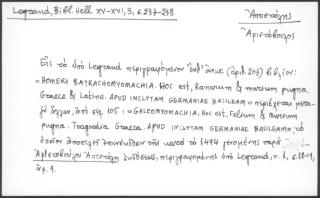 Legrand, Bibl. Hell. XV-XVI, 3, σ. 237-238
Ἀποστόλης
Ἀριστόβουλος
Εἰς τὸ ὑπὸ Legrand περιγραφόμενον (ἀρ. 203) βιβλίον:
«HOMERI BATRACHOMYOMACHIA. Hoc est, Ranarum & murium pugna.
Graece & Latine. APUD INCLYTAM GERMANIAE BASILEAM» περιέχεται μεταξὺ
ἄλλων, ἀπὸ σελ. 105: «GALEOMYOMACHIA, Hoc est, Felium & Murium
pugna. Tragoedia Graeca. APUD INCLYTAM GERMANIAE BASILEAM» τὸ
ὁποῖον ἀποτελεῖ τῆς κατὰ τὸ 1494 γενομένης παρὰ
Ἀριστοβούλου Ἀποστόλη ἐκδόσεως, περιγραφομένης ὑπὸ Legrand, τ. 1, σ. 18-19,
ἀρ. 9.